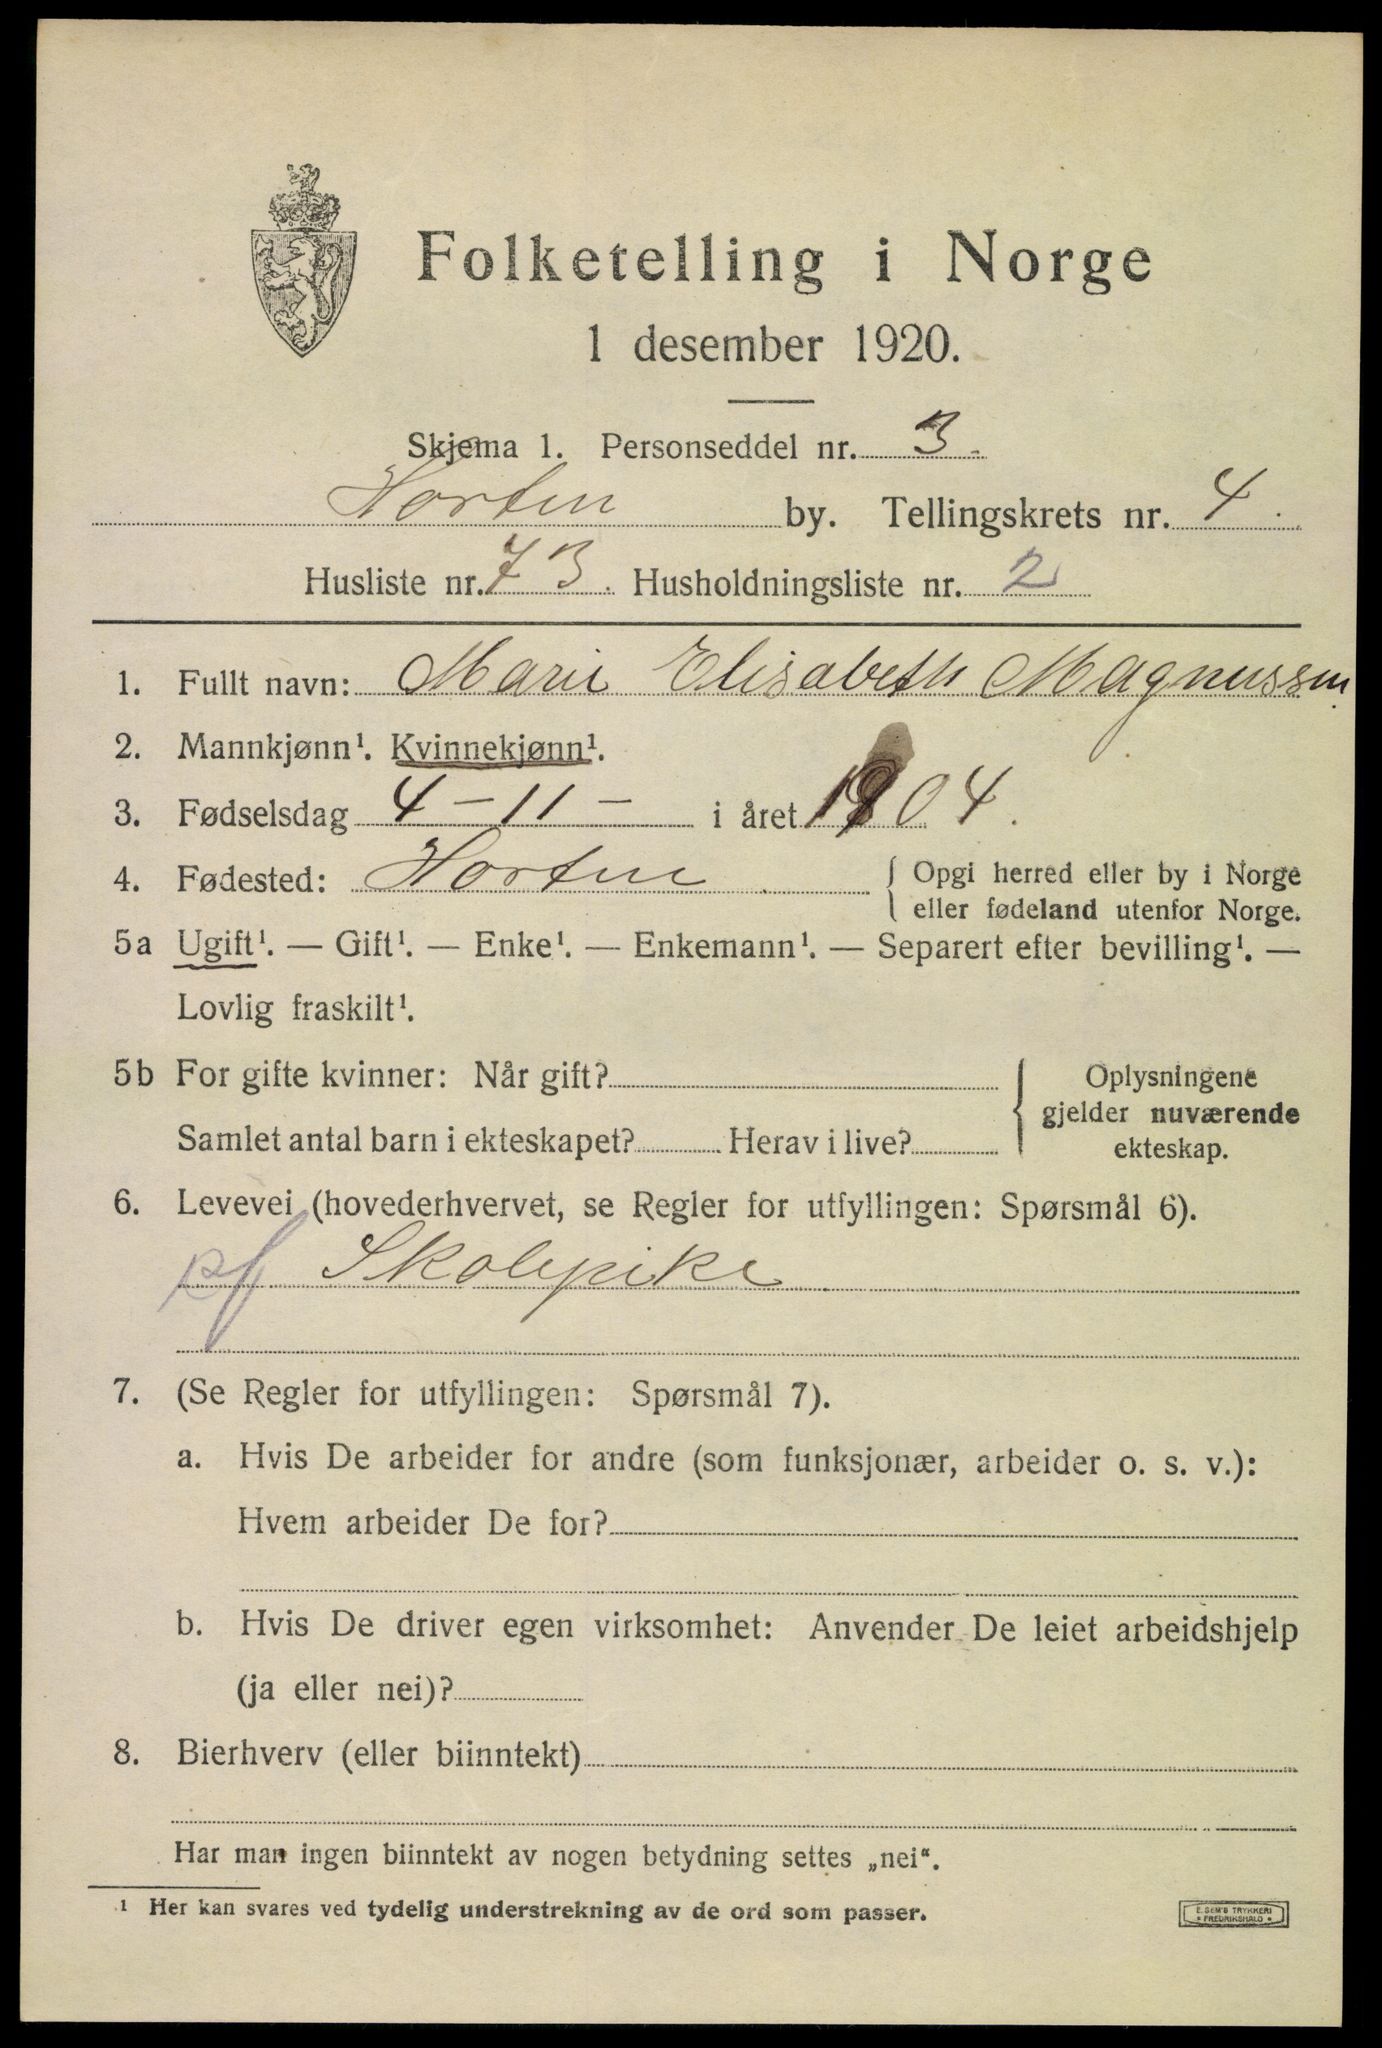 Folketelling i Norge
1 desember 1920.
Skjema 1. Personseddel nr. 3.
Horten by. Tellingskrets nr. 4.
Husliste nr. 73. Husholdningsliste nr. 2
1. Fullt navn: Marie Elisabeth Magnussen
2. Mannkjønn¹. Kvinnekjønn¹.
3. Fødselsdag 4-11- i året 1904.
4. Fødested: Horten { Opgi herred eller by i Norge
eller fødeland utenfor Norge.
5a Ugift¹. — Gift¹. — Enke¹. — Enkemann¹. — Separert efter bevilling¹. —
Lovlig fraskilt¹.
5b For gifte kvinner: Når gift? { Oplysningene
gjelder nuværende
Samlet antal barn i ekteskapet? Herav i live? ekteskap.
6. Levevei (hovederhvervet, se Regler for utfyllingen: Spørsmål 6).
pf Skolepike
7. (Se Regler for utfyllingen: Spørsmål 7).
a. Hvis De arbeider for andre (som funksjonær, arbeider o. s. v.):
Hvem arbeider De for?
b. Hvis De driver egen virksomhet: Anvender De leiet arbeidshjelp
(ja eller nei)?
8. Bierhverv (eller biinntekt)
Har man ingen biinntekt av nogen betydning settes „nei“.
¹ Her kan svares ved tydelig understrekning av de ord som passer.
E. SEM'S TRYKKERI
• FREDRIKSHALD •